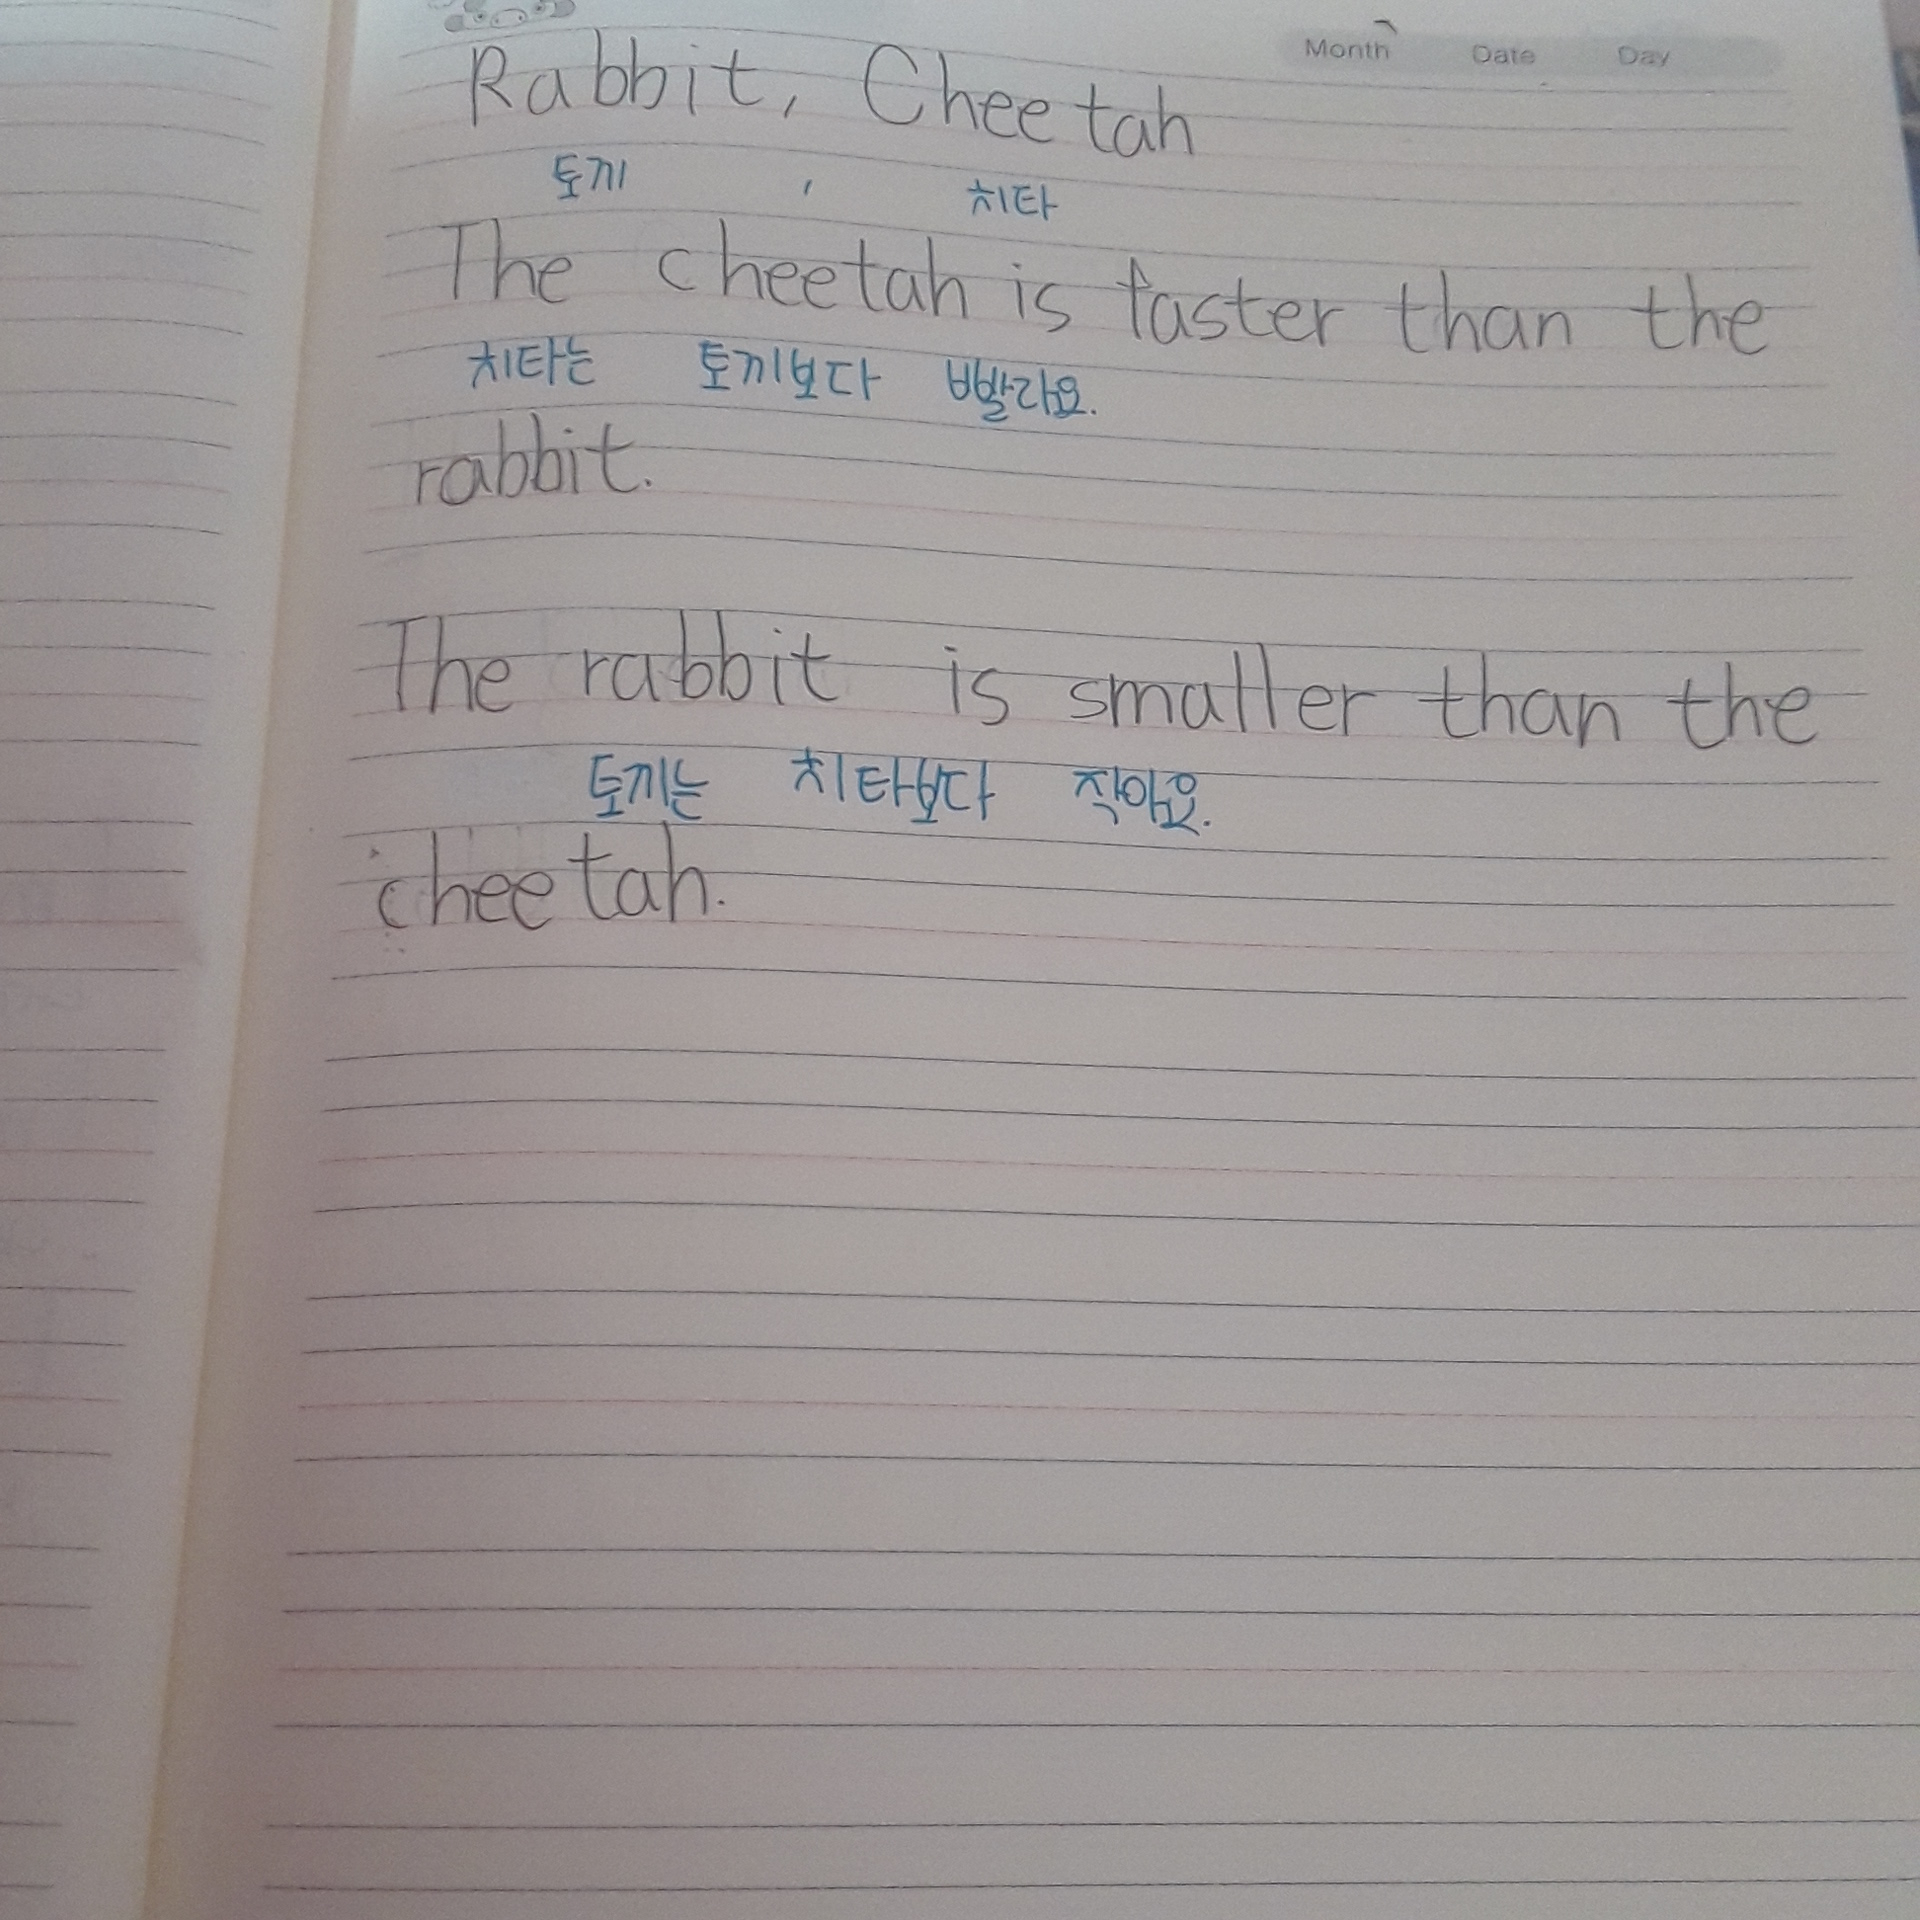 Month Date Day
Rabbit, Cheetah
토끼 , 치타
The cheetah is faster than the
치타는 토끼보다 빨라요.
rabbit.
The rabbit is smaller than the
토끼는 치타보다 작아요.
cheetah.